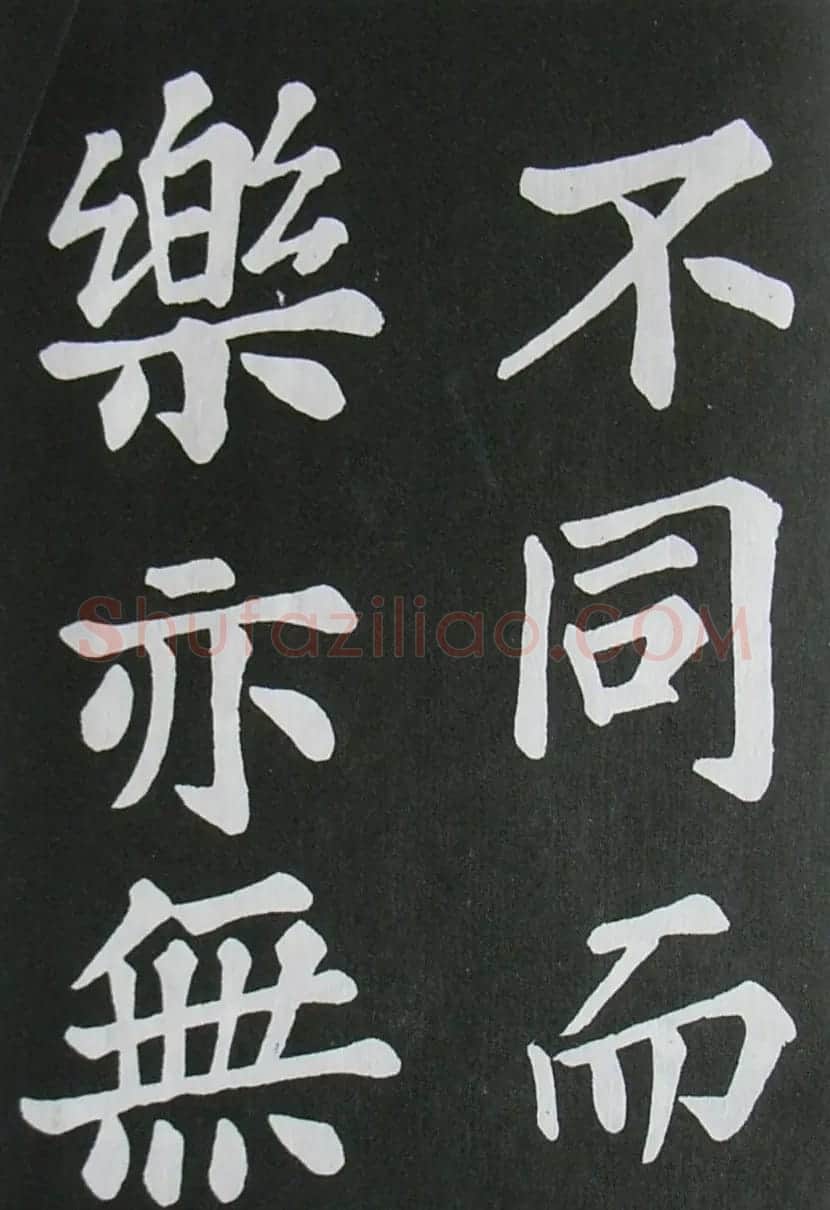 不同而
樂亦無
Shufaziliao.COM